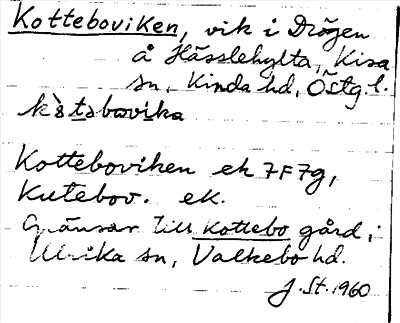 Kotteboviken, vik i Drögen
å Hässlehylta, Kisa
sn, Kinda hd, Östg. l.
Kotteboviken ek 7F7g,
Kutebov. ek.
Gränsar till Kottebo gård i
Ulrika sn, Valkebo hd.
J. St. 1960